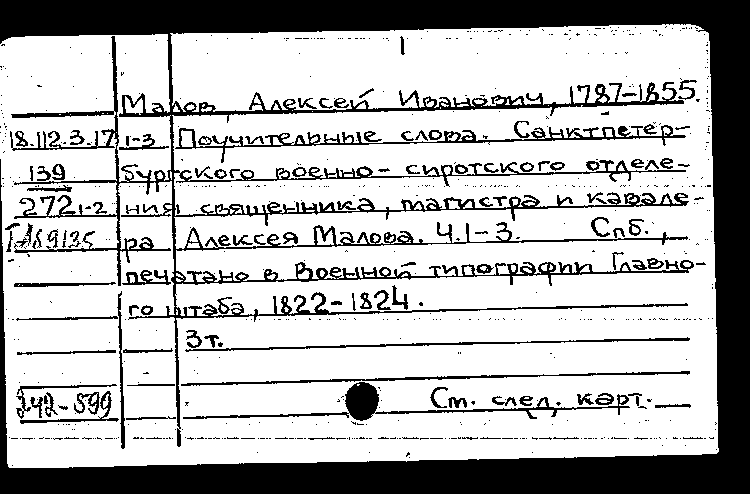 Малов, Алексей Иванович, 1787-1855.
18.112.3.17 1-3 Поучительные слова. Санктпетер-
139 бургского военно-сиротского отделе-
272 1-2 ния священника, магистра и кавале-
ра Алексея Малова. Ч.1-3. Спб.,
печатано в Военной типографии Главно-
го штаба, 1822-1824.
3т.
См. след. карт.